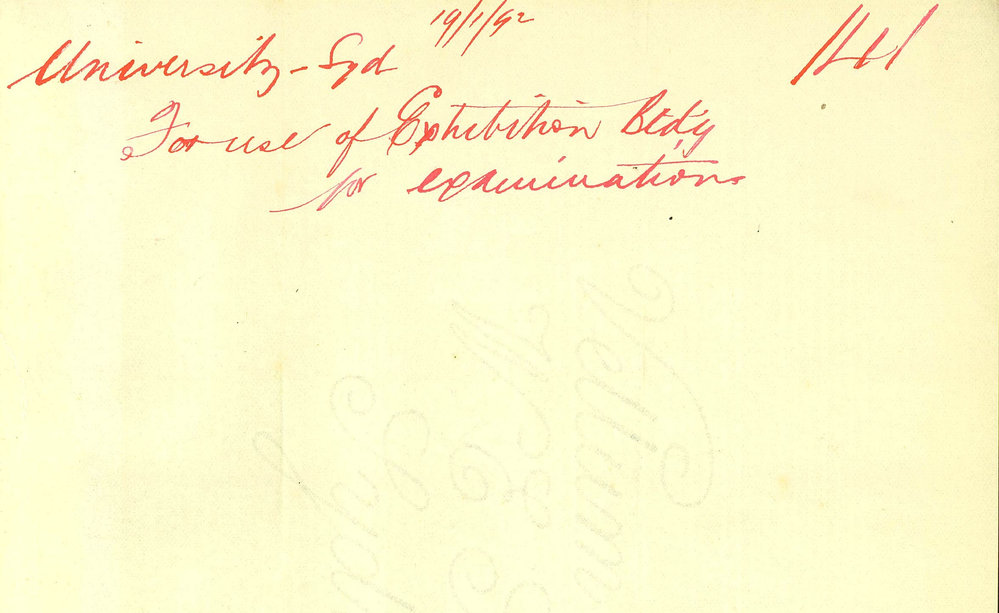 19/1/92
University - Syd
141
For use of Exhibition Bld'g
for examinations